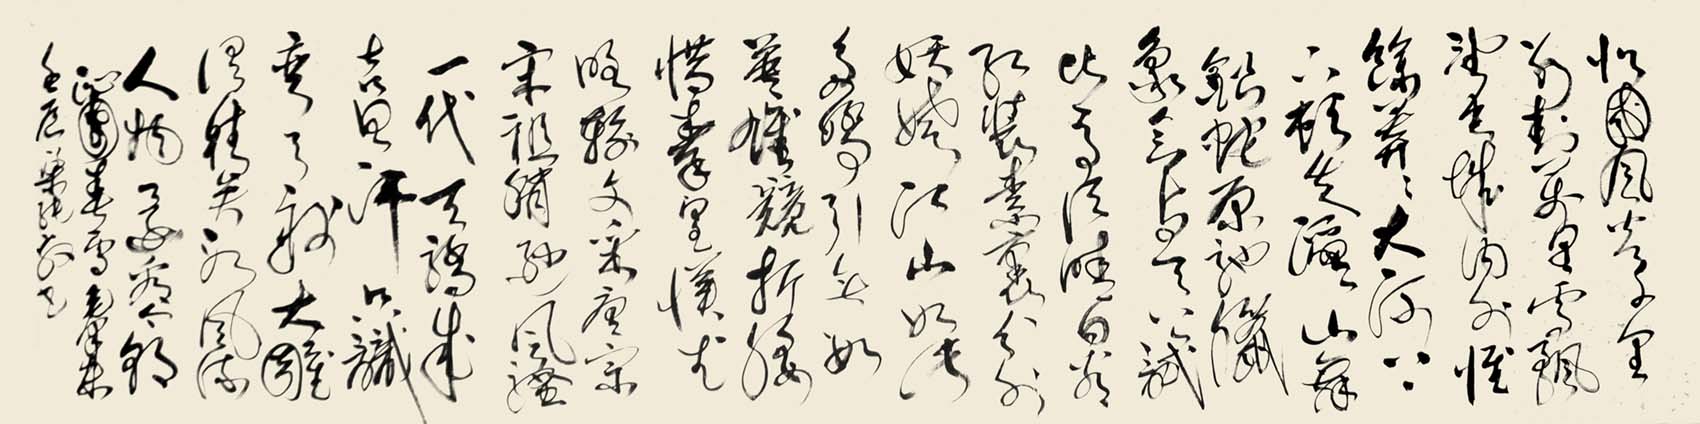 北國風光千里
冰封萬里雪飄
望長城內外惟
餘莽莽大河上
下頓失滔滔山舞
銀蛇原馳蠟
象欲與天公試
比高須晴日看
紅裝素裹分外
妖嬈江山如此
多嬌引無數
英雄競折腰
惜秦皇漢武
略輸文采唐宗
宋祖稍遜風騷
一代天驕成
吉思汗只識
彎弓射大雕
俱往矣數風流
人物還看今朝
沁園春雪毛澤東
壬辰